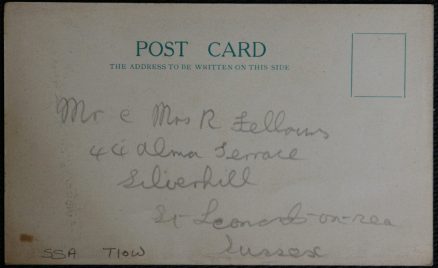 POST CARD
THE ADDRESS TO BE WRITTEN ON THIS SIDE
Mr & Mrs R Fellows
44 Alma Terrace
Silverhill
St Leonards-on-sea
Sussex
SSA T10W